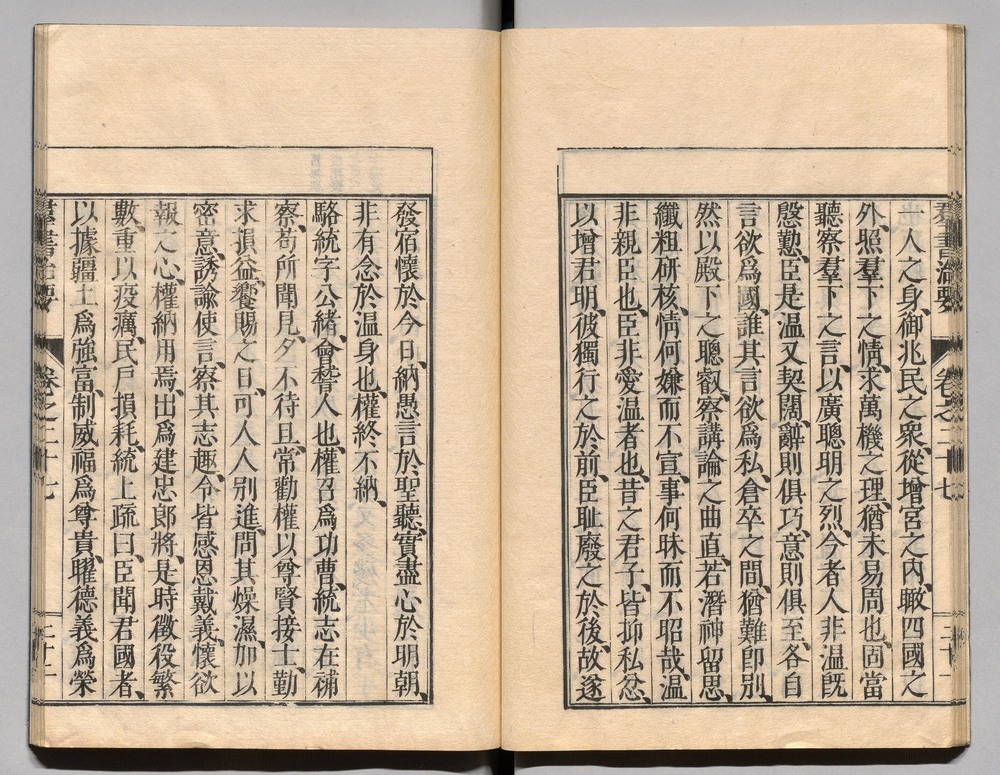 羣書治要 卷之二十七
人之身、御兆民之衆、從增宮之內、瞰四國之
外、照羣下之情、求萬機之理、猶未易周也、固當
聽察羣下之言、以廣聰明之烈、今者人非溫旣
慇懃、臣是溫又契闊、辭則俱巧、意則俱至、各自
言欲爲國、誰其言欲爲私、倉卒之間、猶難卽別、
然以殿下之聰叡、察講論之曲直、若潛神留思、
纖粗研核、情何嫌而不宣、事何昧而不昭哉、溫
非親臣也、臣非愛溫者也、昔之君子、皆抑私忿、
以增君明、彼獨行之於前、臣耻廢之於後、故遂
發宿懷於今日、納愚言於聖聽、實盡心於明朝、
非有念於溫身也、權終不納、
駱統字公緒、會稽人也、權召爲功曹、統志在補
察、苟所聞見、夕不待旦、常勸權以尊賢接士、勤
求損益、饗賜之日、可人人別進、問其燥濕、加以
密意、誘諭使言、察其志趣、令皆感恩戴義、懷欲
報之心、權納用焉、出爲建忠郎將、是時徵役繁
數、重以疫癘、民戶損耗、統上疏曰、臣聞君國者、
以據疆土爲強富、制威福爲尊貴、曜德義爲榮
羣書治要 卷之二十七